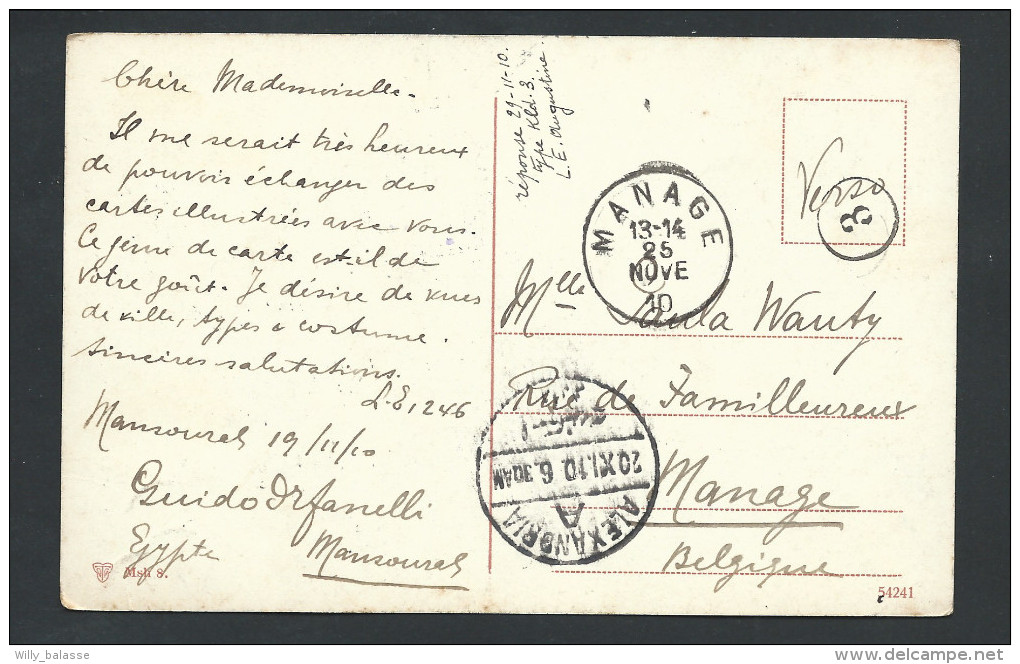 Chère Mademoiselle.
Il me serait très heureux
de pouvoir échanger des
cartes illustrées avec vous.
Ce genre de carte est-il de
votre goût. Je désire de vues
de ville, types & costume.
Sincères salutations.
L.E, 246
Mansourah 19/11/10
Guido Orfanelli
Egypte Mansourah
Msh 8.
réponse 29-11-10.
type Kld. 3.
L. E. Augustine.
MANAGE
13-14
25
NOVE
10
Verso
3
Mlle Paula Wauty
Rue de Familleureux
Manage
Belgique
ALEXANDRIA
A
20 XI.10 6.30AM
54241
Willy_balasse
delcampe.net